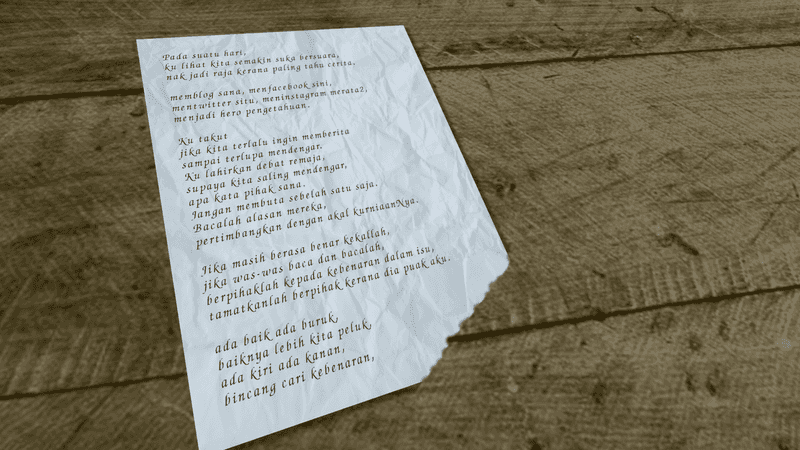 Pada suatu hari,
ku lihat kita semakin suka bersuara,
nak jadi raja kerana paling tahu cerita,
memblog sana, menfacebook sini,
mentwitter situ, meninstagram merata2,
menjadi hero pengetahuan.
Ku takut
jika kita terlalu ingin memberita
sampai terlupa mendengar.
Ku lahirkan debat remaja,
supaya kita saling mendengar,
apa kata pihak sana.
Jangan membuta sebelah satu saja.
Bacalah alasan mereka,
pertimbangkan dengan akal kurniaanNya.
Jika masih berasa benar kekallah,
jika was-was baca dan bacalah,
berpihaklah kepada kebenaran dalam isu,
tamatkanlah berpihak kerana dia puak aku.
ada baik ada buruk,
baiknya lebih kita peluk,
ada kiri ada kanan,
bincang cari kebenaran,